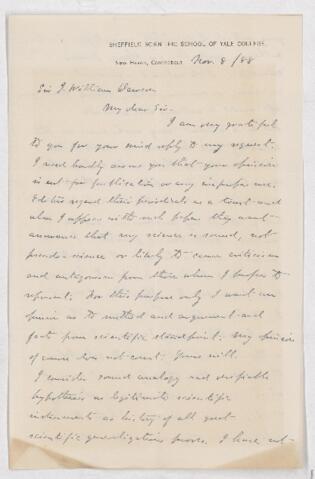 SHEFFIELD SCIENTIFIC SCHOOL OF YALE COLLEGE.
New Haven, Connecticut Nov. 8/88
Sir J. William Dawson
My dear Sir.
I am very grateful
to you for your kind reply to my request.
I need hardly assure you that your opinion
is not for publication or any improper use.
Editors regard their periodicals as a trust and
when I appear with such papers they want
assurance that my science is sound, not
pseudo-science or likely to cause criticism
and antagonism from those whom I propose to
represent. For this purpose only I want an
opinion as to method and argument and
facts from scientific standpoint; my opinion
of course does not count. Yours will.
I consider sound analogy and verifiable
hypothesis as legitimate scientific
instruments as history of all great
scientific generalizations proves. I have not